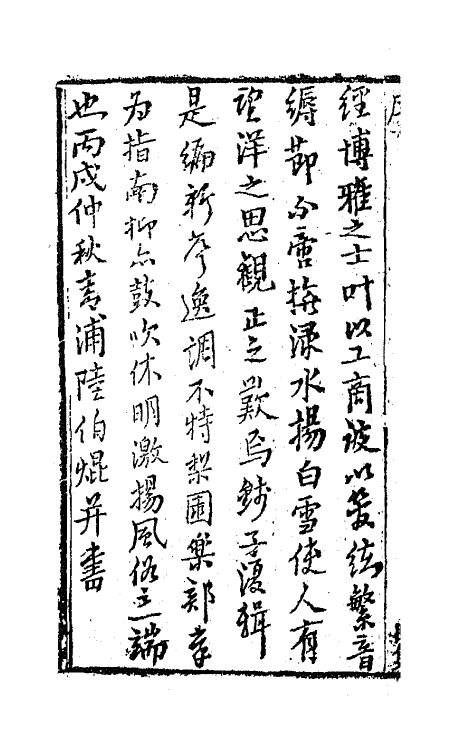 經博雅之士叶以工商被以管絃繁音
縟節不啻撫渌水揚白雪使人有
望洋之思觀止之歎焉錢子復輯
是編新聲逸調不特梨園樂部奉
为指南抑亦鼓吹休明激揚風俗之一端
也丙戌仲秋青浦陸伯焜并書